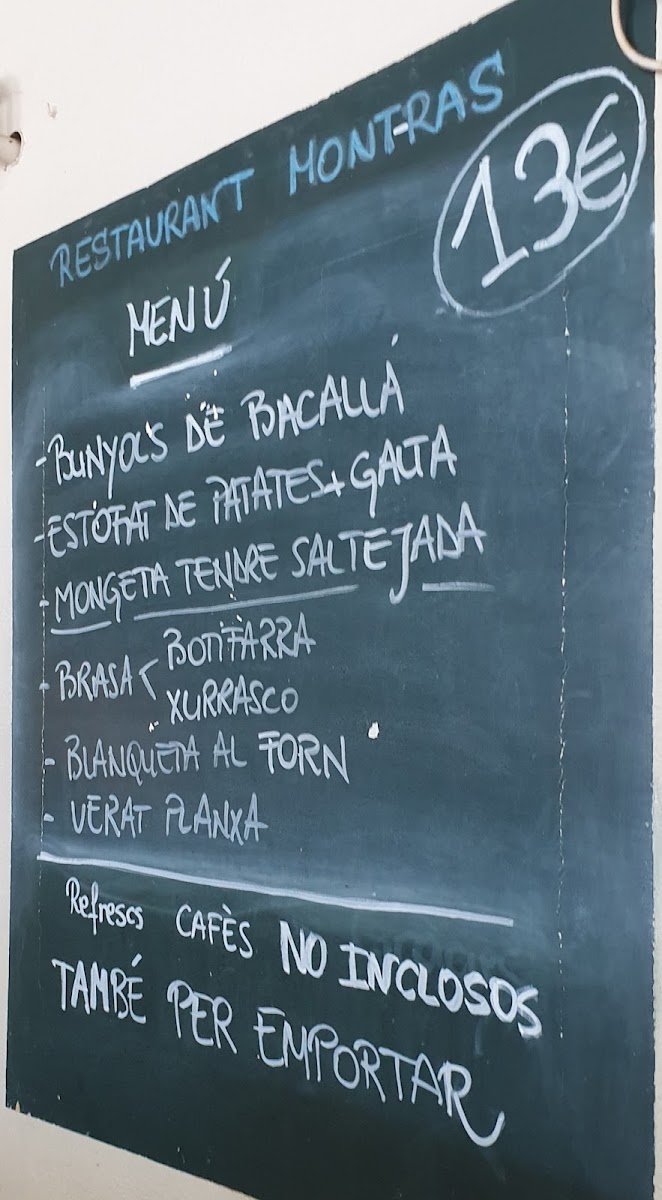 RESTAURANT MONT-RAS
13€
MENÚ
- BUNYOLS DE BACALLÁ
- ESTOFAT DE PATATES + GALTA
- MONGETA TENDRE SALTEJADA
- BRASA < BOTIFARRA
XURRASCO
- BLANQUETA AL FORN
- VERAT PLANXA
Refrescs CAFÈS NO INCLOSOS
TAMBÉ PER EMPORTAR